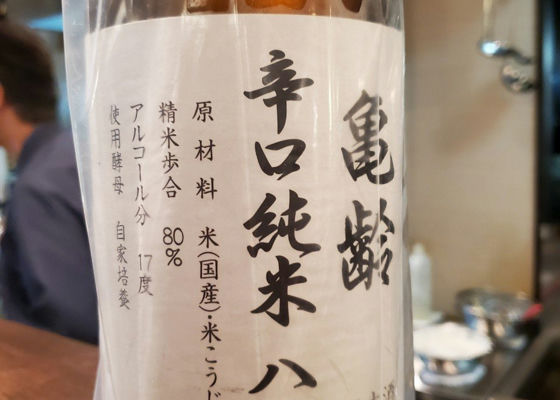 亀齢
辛口純米 八
原材料 米(国産)・米こうじ
精米歩合 80%
アルコール分 17度
使用酵母 自家培養